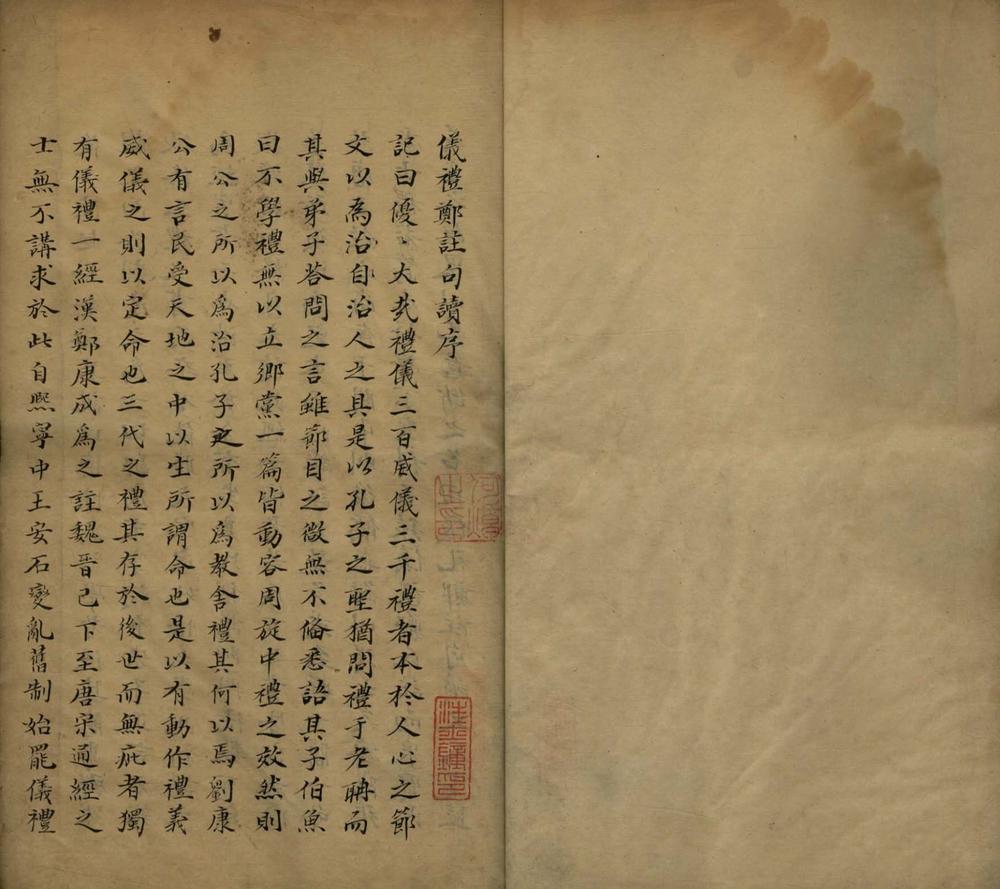 儀禮鄭註句讀序
記曰優〻大㦲禮儀三百威儀三千禮者本於人心之節
文以為治自治人之具是以孔子之聖猶問禮于老聃而
其與弟子荅問之言雖節目之微無不俻悉語其子伯魚
曰不學禮無以立鄉黨一篇皆動容周旋中禮之效然則
周公之所以爲治孔子之所以爲教舍禮其何以焉劉康
公有言民受天地之中以生所謂命也是以有動作禮義
威儀之則以定命也三代之禮其存於後世而無疵者獨
有儀禮一經漢鄭康成爲之註魏晉已下至唐宋通經之
士無不講求於此自熈寧中王安石變亂舊制始罷儀禮